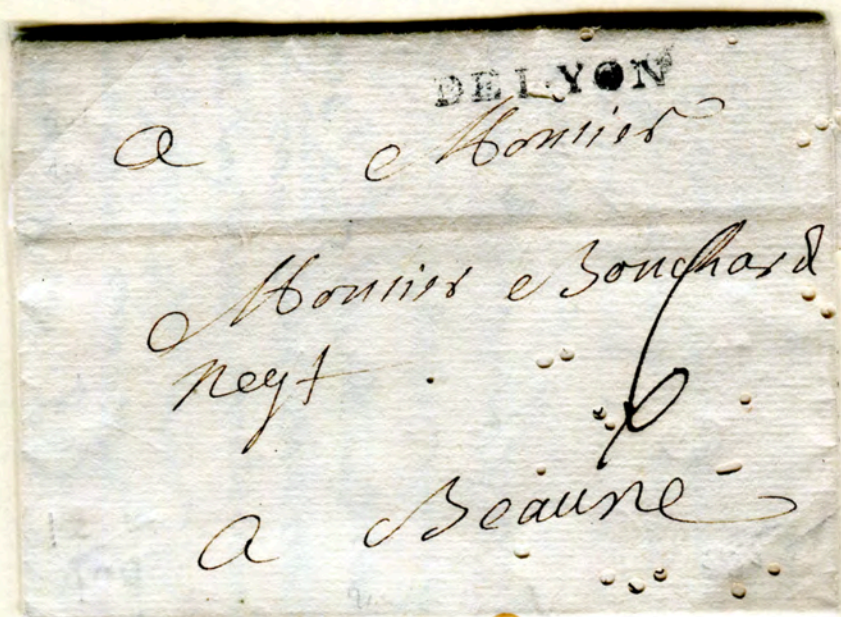 DE LYON
a Monsier
Monsier Bouchard
negt
6
a Beaune